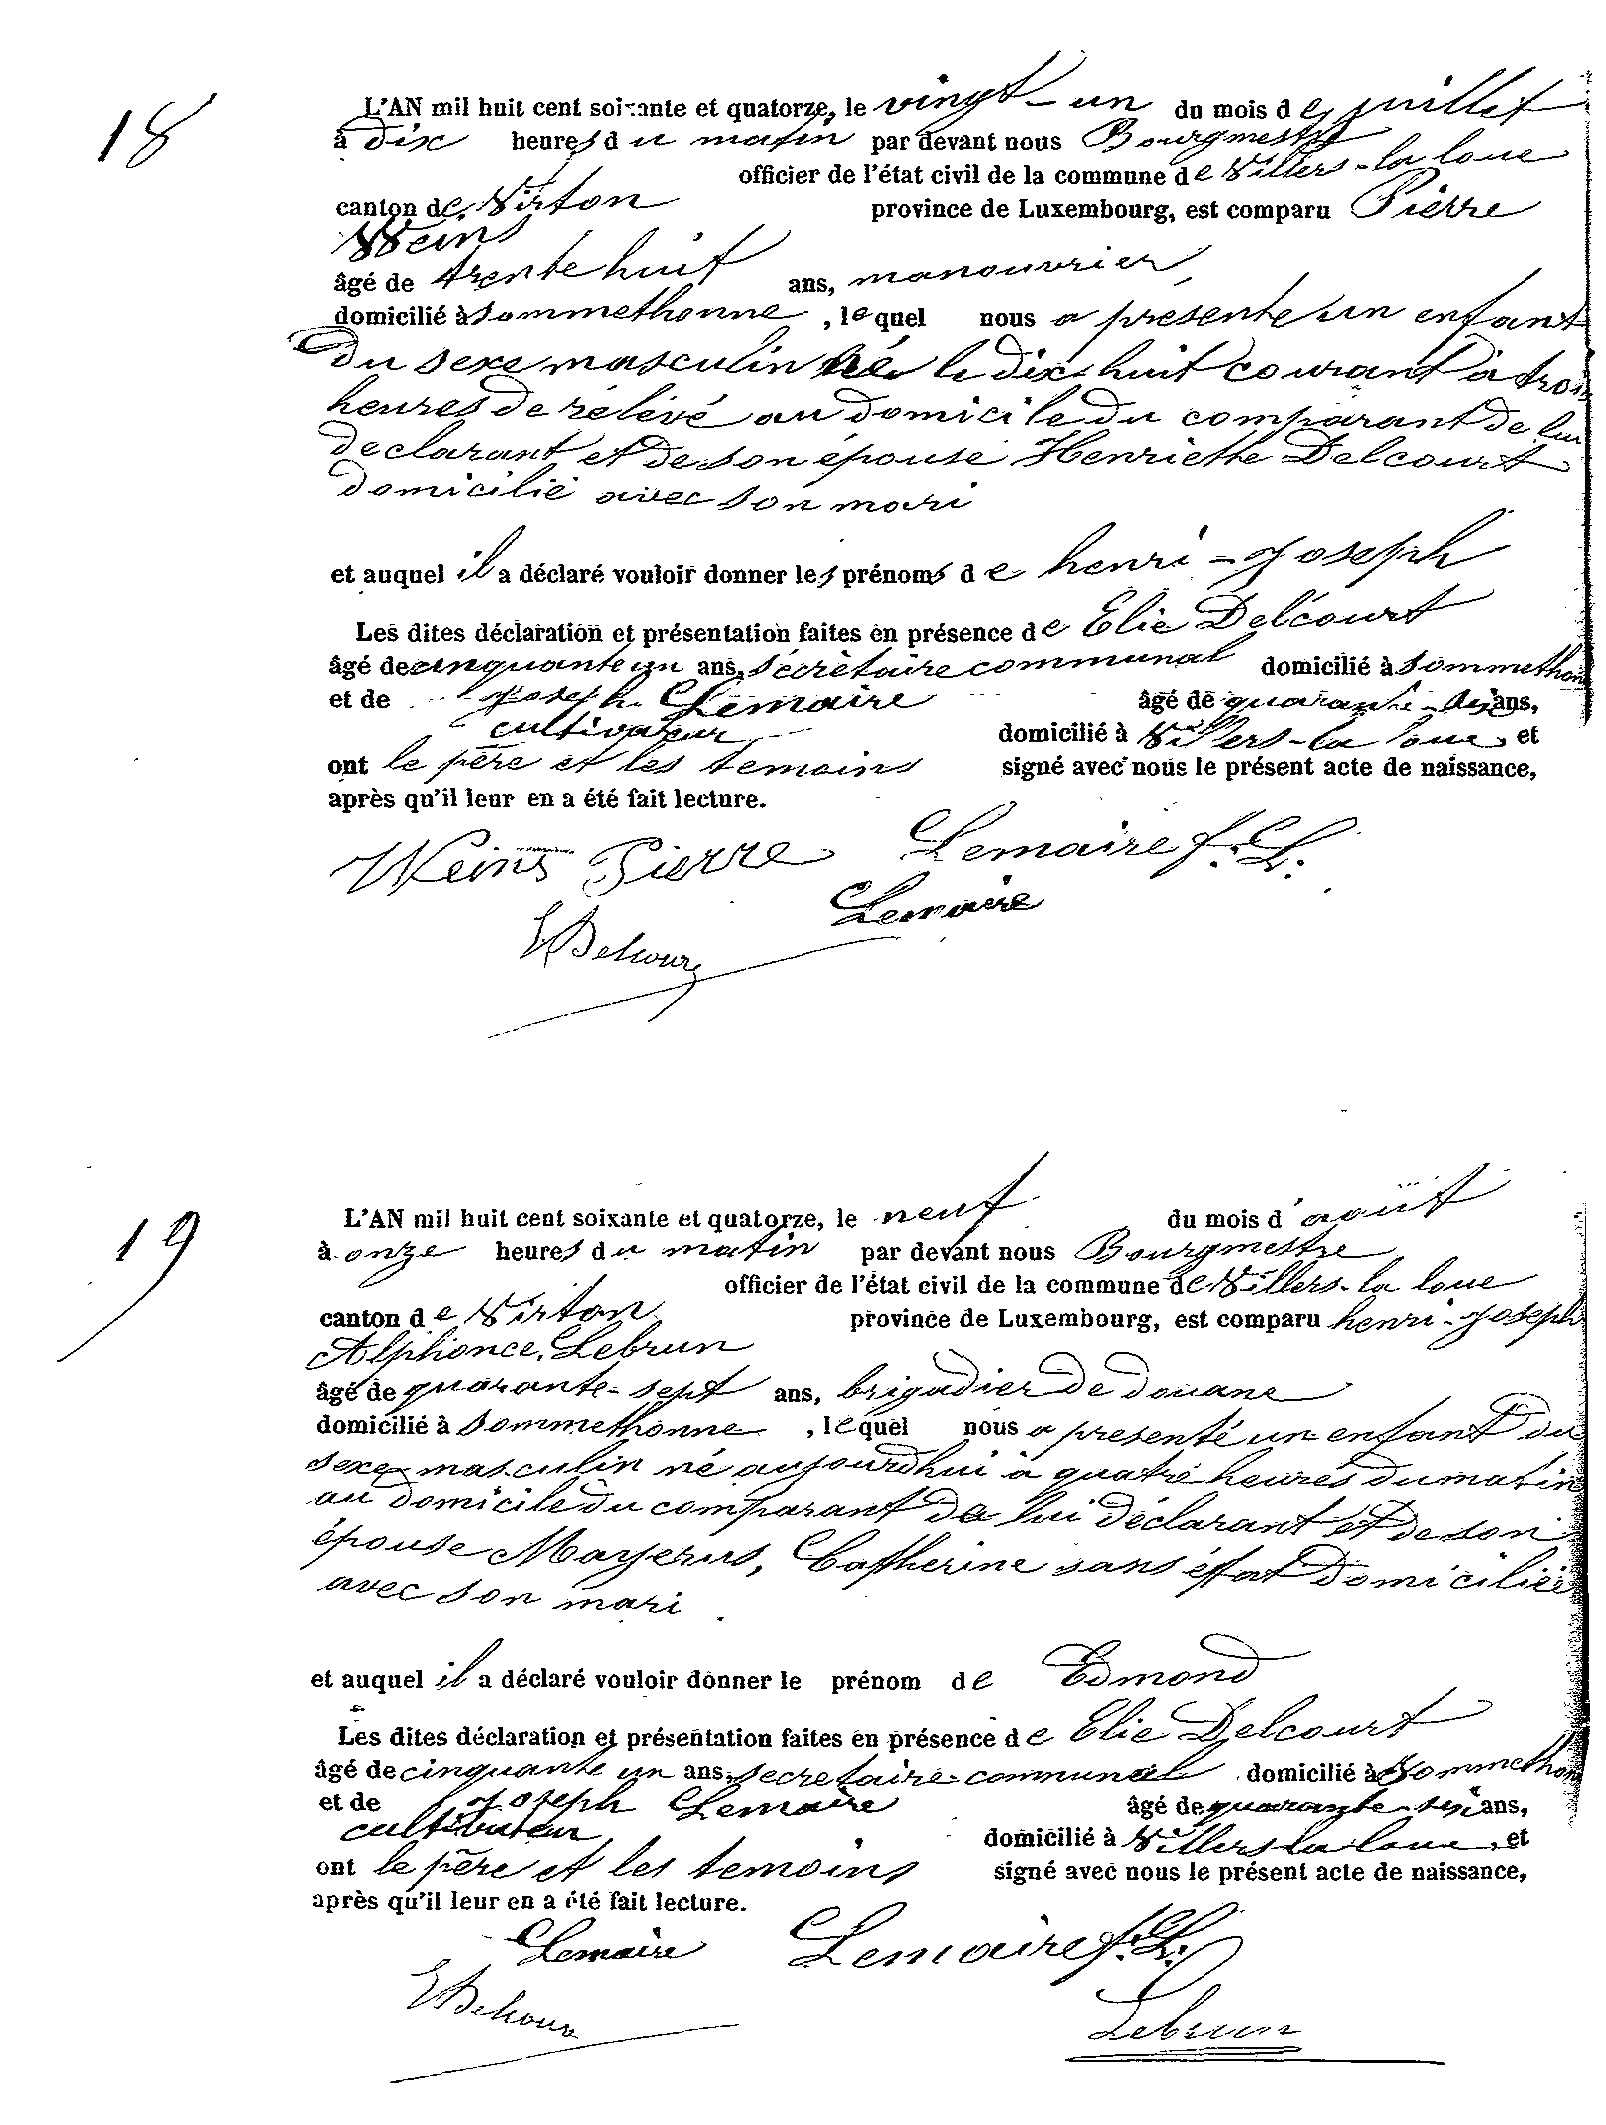 18
L'AN mil huit cent soixante et quatorze, le vingt-un du mois de juillet
à dix heures du matin par devant nous Bourgmestre
officier de l'état civil de la commune de Villers-la loue
canton de Virton province de Luxembourg, est comparu Pierre
Weins
âgé de trente huit ans, manouvrier,
domicilié à Sommethonne, lequel nous a presente un enfant
Du sexe masculin né le dix-huit courant à trois
heures de rélévé au domicile du comparant de lui
declarant et de son épouse Henriette Delcourt
domicilié avec son mari
et auquel il a déclaré vouloir donner les prénoms de henri-Joseph
Les dites déclaration et présentation faites en présence de Elie Delcourt
âgé de cinquante un ans, sécrètaire communal domicilié à Sommethon
et de Joseph Lemaire âgé de quarante- ans,
cultivateur domicilié à Villers-la loue, et
ont le père et les temoins signé avec nous le présent acte de naissance,
après qu'il leur en a été fait lecture.
Weins Pierre Lemaire f.L.
Lemaire
EDelcour
19
L'AN mil huit cent soixante et quatorze, le neuf du mois d'août
à onze heures du matin par devant nous Bourgmestre
officier de l'état civil de la commune de Villers-la loue
canton de Virton province de Luxembourg, est comparu henri-Joseph
Alphonce Lebrun
âgé de quarante-sept ans, brigadier de douane
domicilié à Sommethonne, lequel nous a presenté un enfant du
sexe masculin né aujourdhui à quatre heures du matin
au domicile du comparant de lui déclarant et de son
épouse Mayerus, Catherine sans éffat domiciliée
avec son mari
et auquel il a déclaré vouloir donner le prénom de Edmond
Les dites déclaration et présentation faites en présence de Elie Delcourt
âgé de cinquante un ans, secretaire-communal domicilié à Sommethon
et de Joseph Lemaire âgé de quarante-six ans,
cultivateur domicilié à Villers la loue, et
ont le père et les temoins signé avec nous le présent acte de naissance,
après qu'il leur en a été fait lecture.
Lemaire Lemaire f.L.
EDelcour
Lebrun